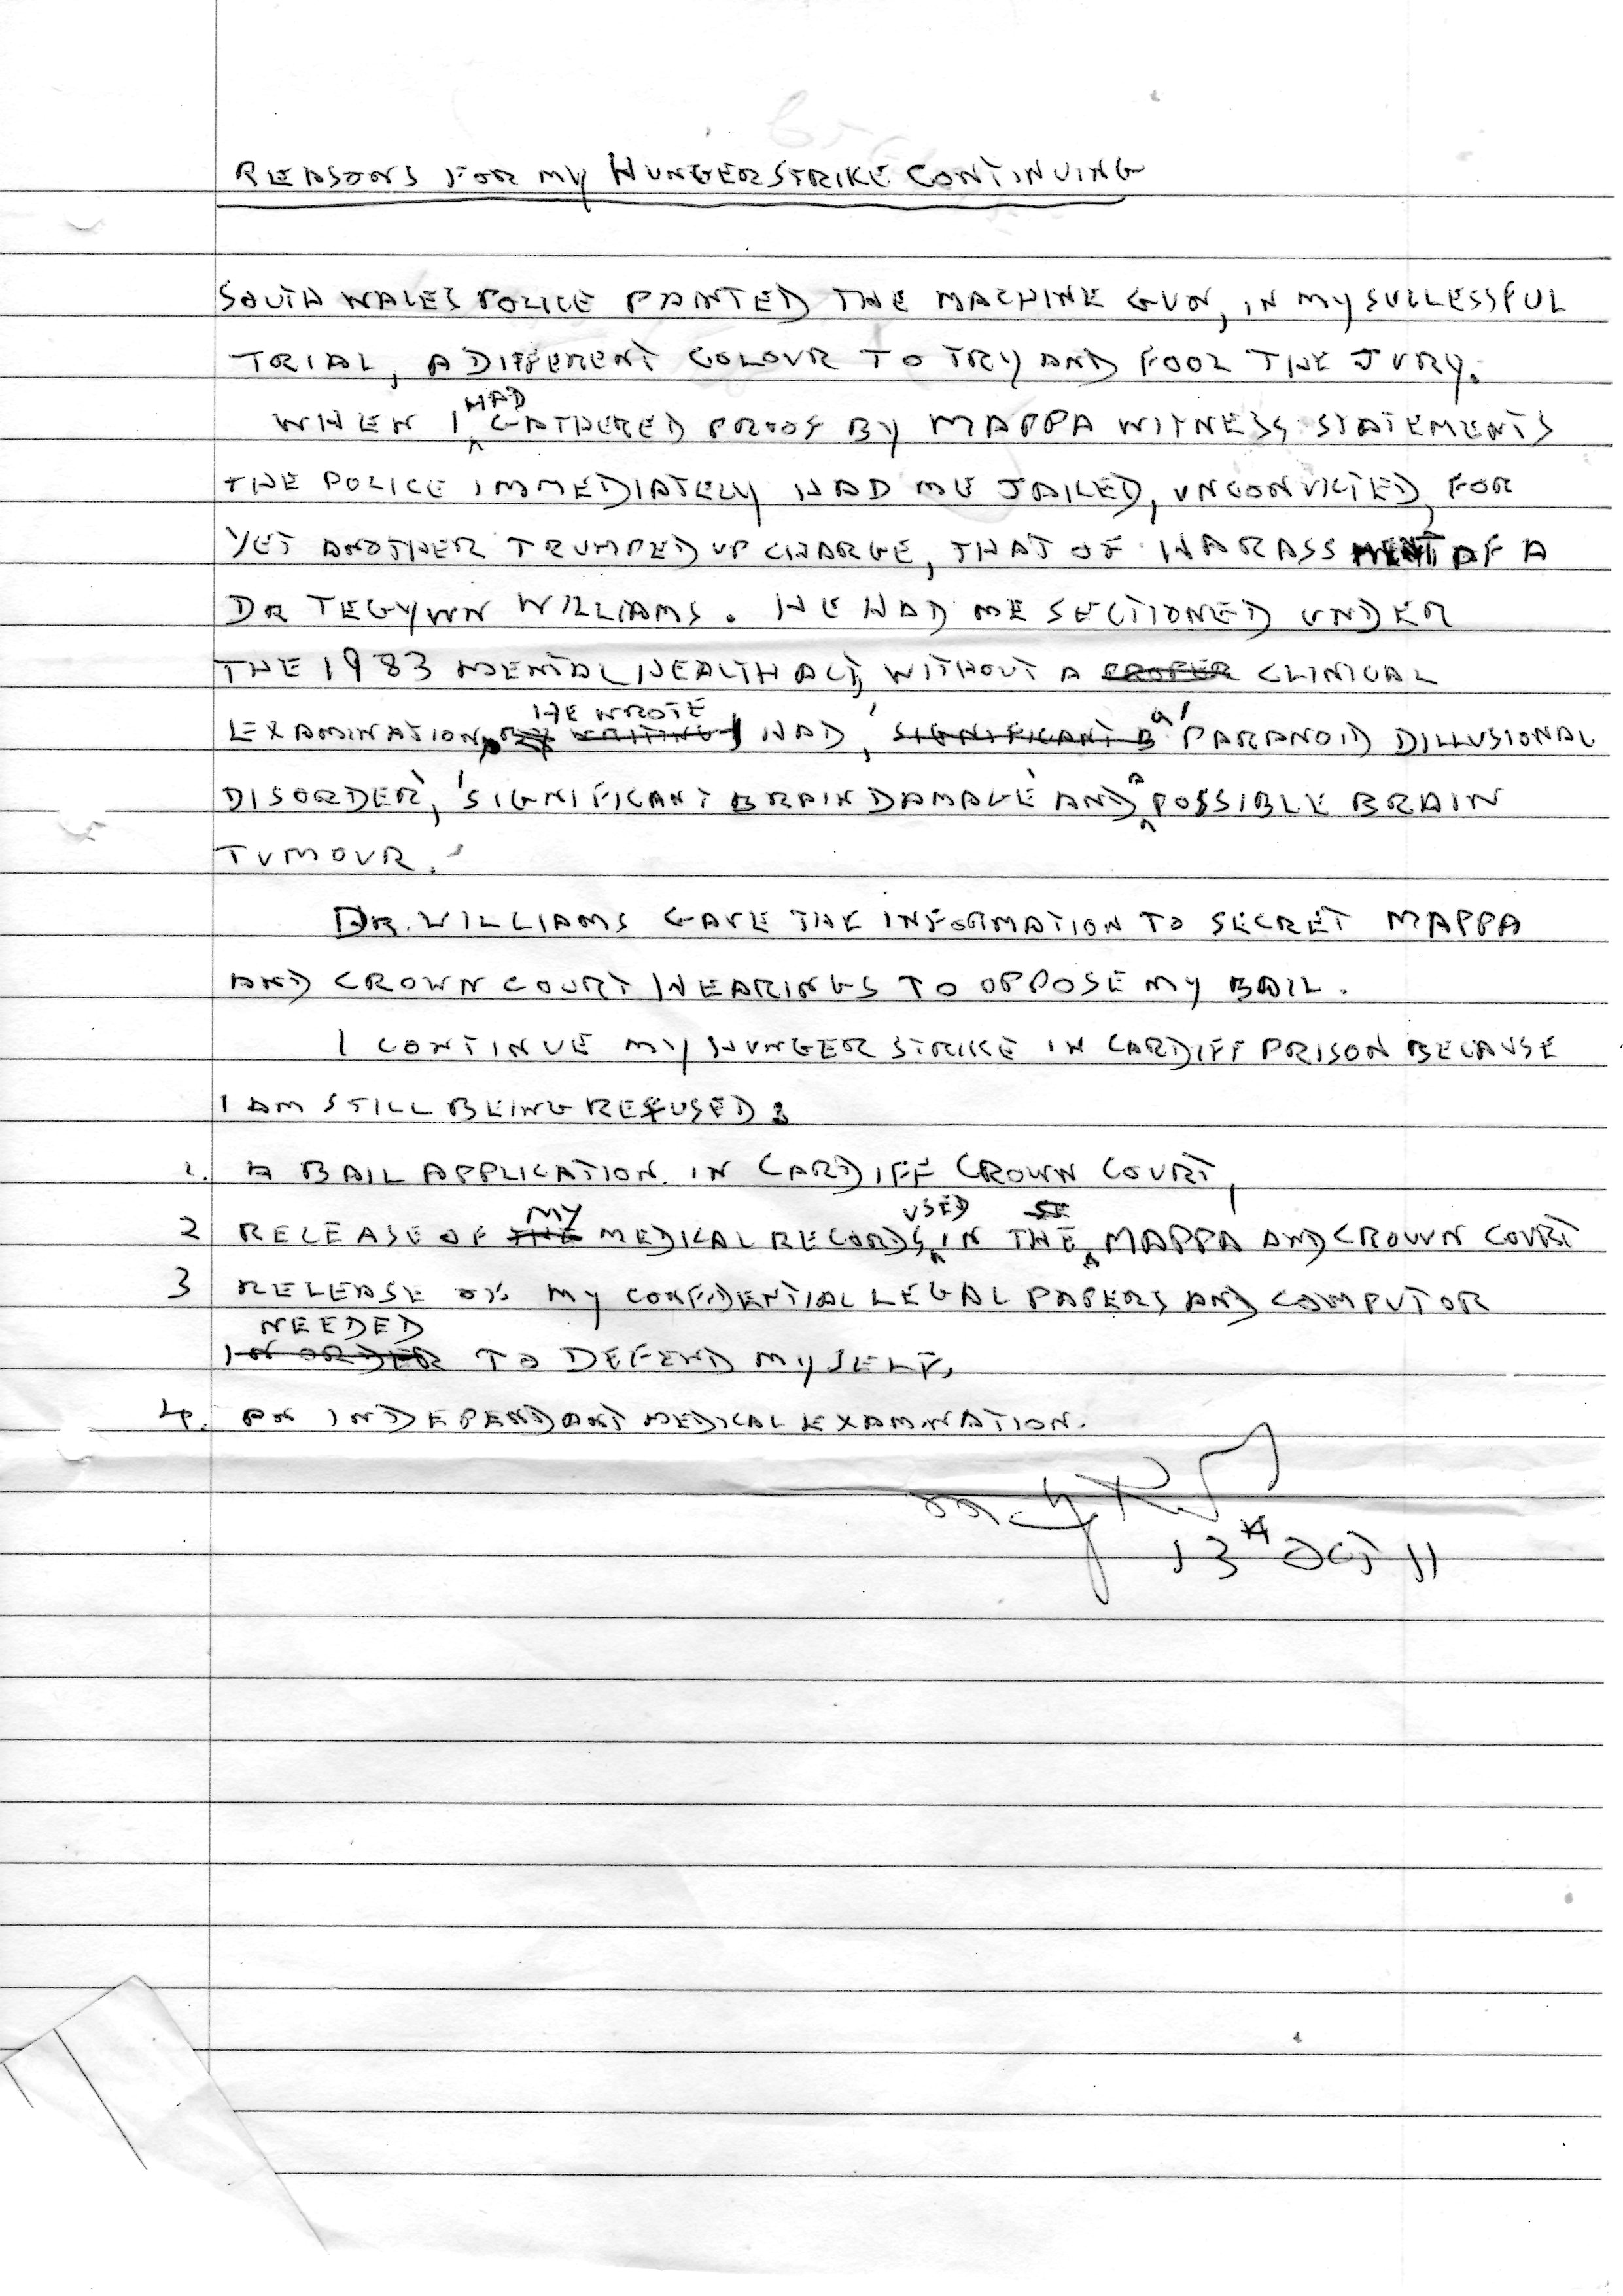 REASONS FOR MY HUNGERSTRIKE CONTINUING
SOUTH WALES POLICE PAINTED THE MACHINE GUN, IN MY SUCCESSFUL
TRIAL, A DIFFERENT COLOUR TO TRY AND FOOL THE JURY.
WHEN I HAD GATHERED PROOF BY MAPPA WITNESS STATEMENTS
THE POLICE IMMEDIATELY HAD ME JAILED, UNCONVICTED, FOR
YET ANOTHER TRUMPED UP CHARGE, THAT OF HARASSMENT OF A
DR TEGYWN WILLIAMS. HE HAD ME SECTIONED UNDER
THE 1983 MENTAL HEALTH ACT, WITHOUT A PROPER CLINICAL
HE WROTE
EXAMINATION, BY WRITING I HAD, 'SIGNIFICANT B a' PARANOID DILLUSIONAL
DISORDER', 'SIGNIFICANT BRAIN DAMAGE' AND A POSSIBLE BRAIN
TUMOUR.'
DR. WILLIAMS GAVE THE INFORMATION TO SECRET MAPPA
AND CROWN COURT HEARINGS TO OPPOSE MY BAIL.
I CONTINUE MY HUNGER STRIKE IN CARDIFF PRISON BECAUSE
I AM STILL BEING REFUSED:
1. A BAIL APPLICATION IN CARDIFF CROWN COURT,
MY USED SE
2 RELEASE OF THE MEDICAL RECORDS, IN THE MAPPA AND CROWN COURT
3 RELEASE OF MY CONFIDENTIAL LEGAL PAPERS AND COMPUTOR
NEEDED
IN ORDER TO DEFEND MYSELF,
4. AN INDEPENDANT MEDICAL EXAMINATION.
13th OCT 11